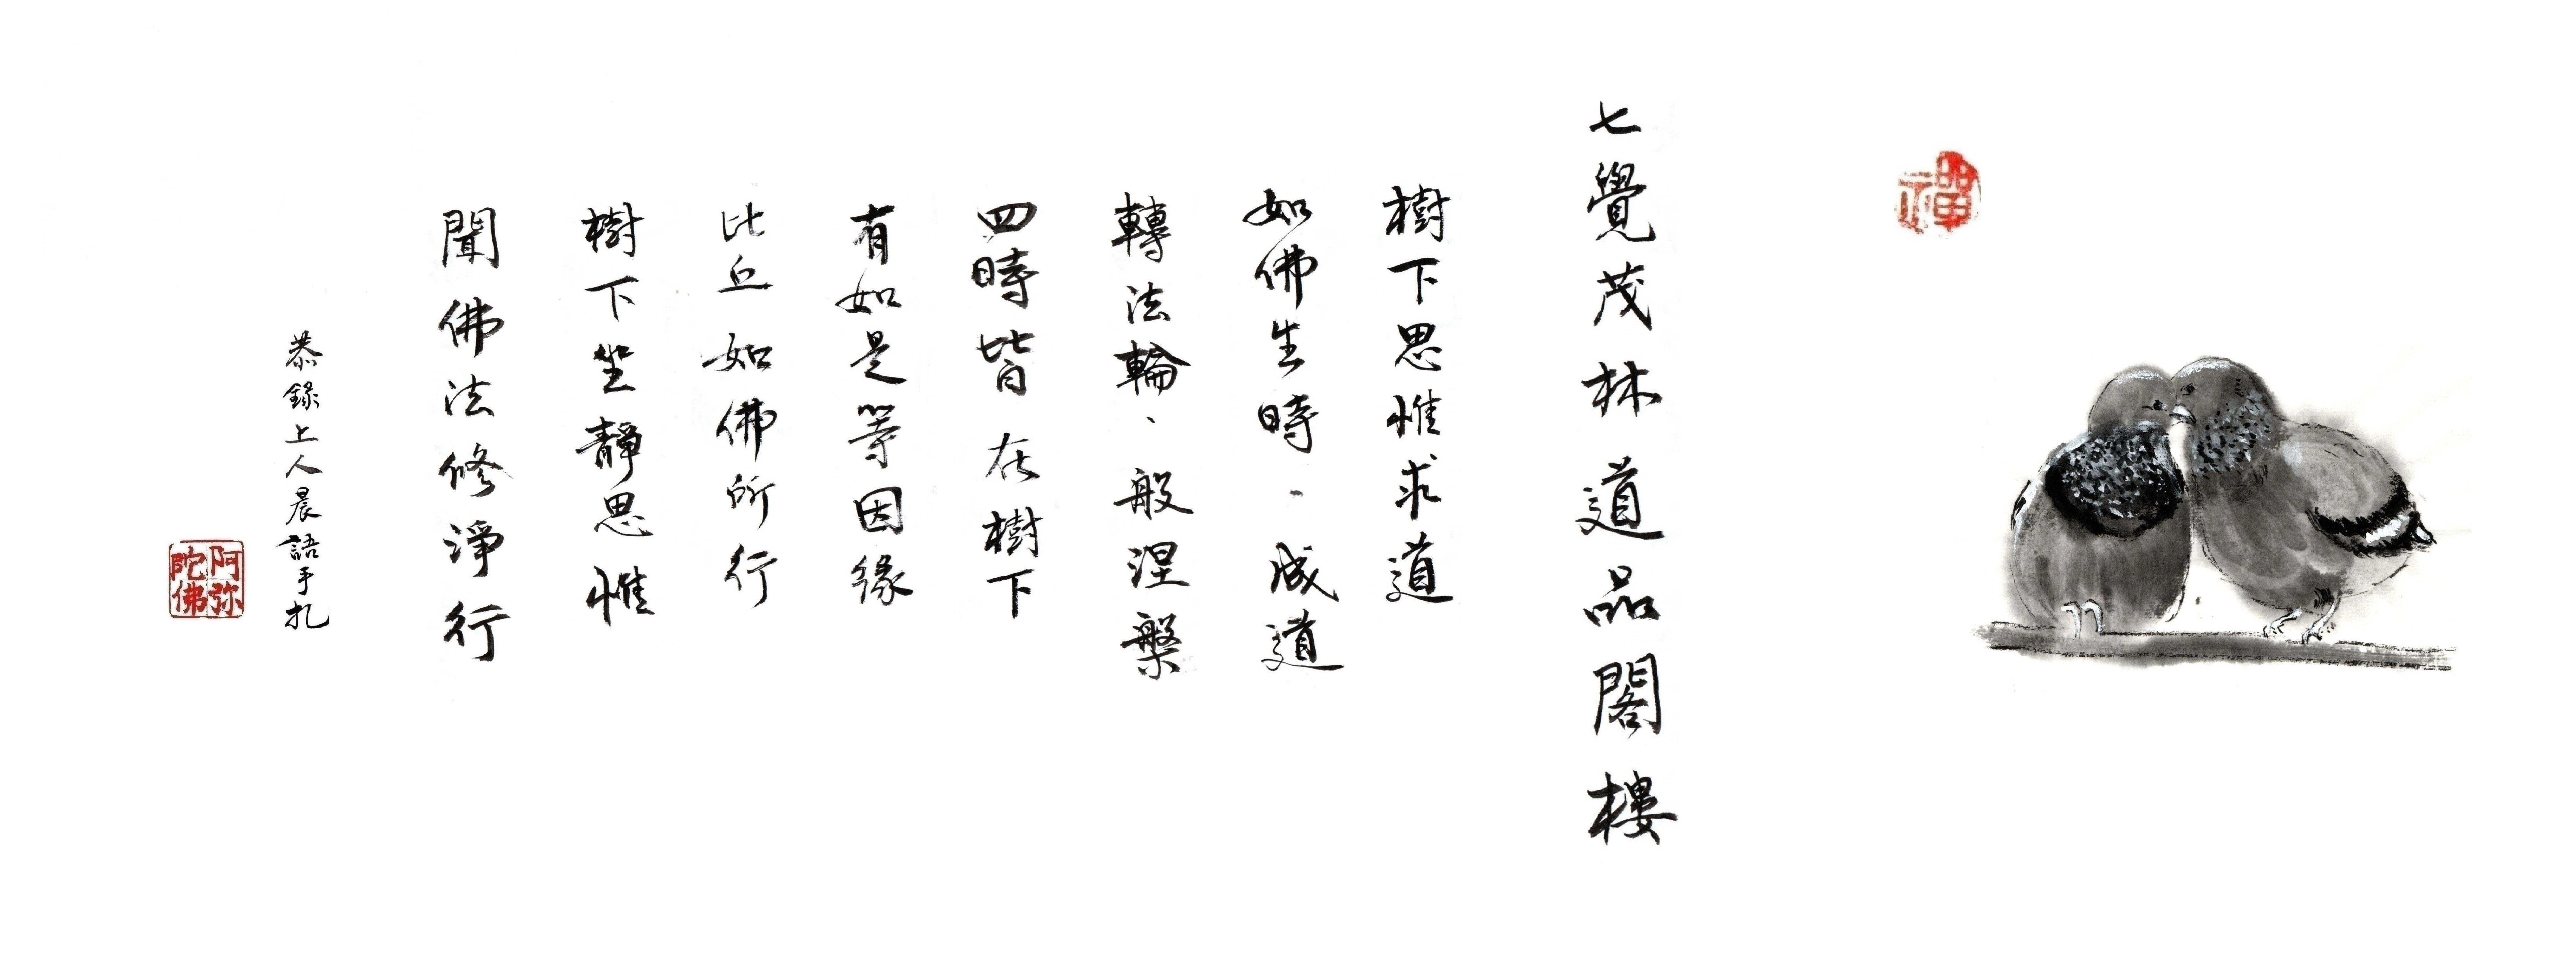 禪
七覺茂林道品閣樓
樹下思惟求道
如佛生時、成道
轉法輪、般涅槃
四時皆在樹下
有如是等因緣
比丘如佛所行
樹下坐靜思惟
聞佛法修淨行
恭錄上人晨語手扎
阿弥
陀佛